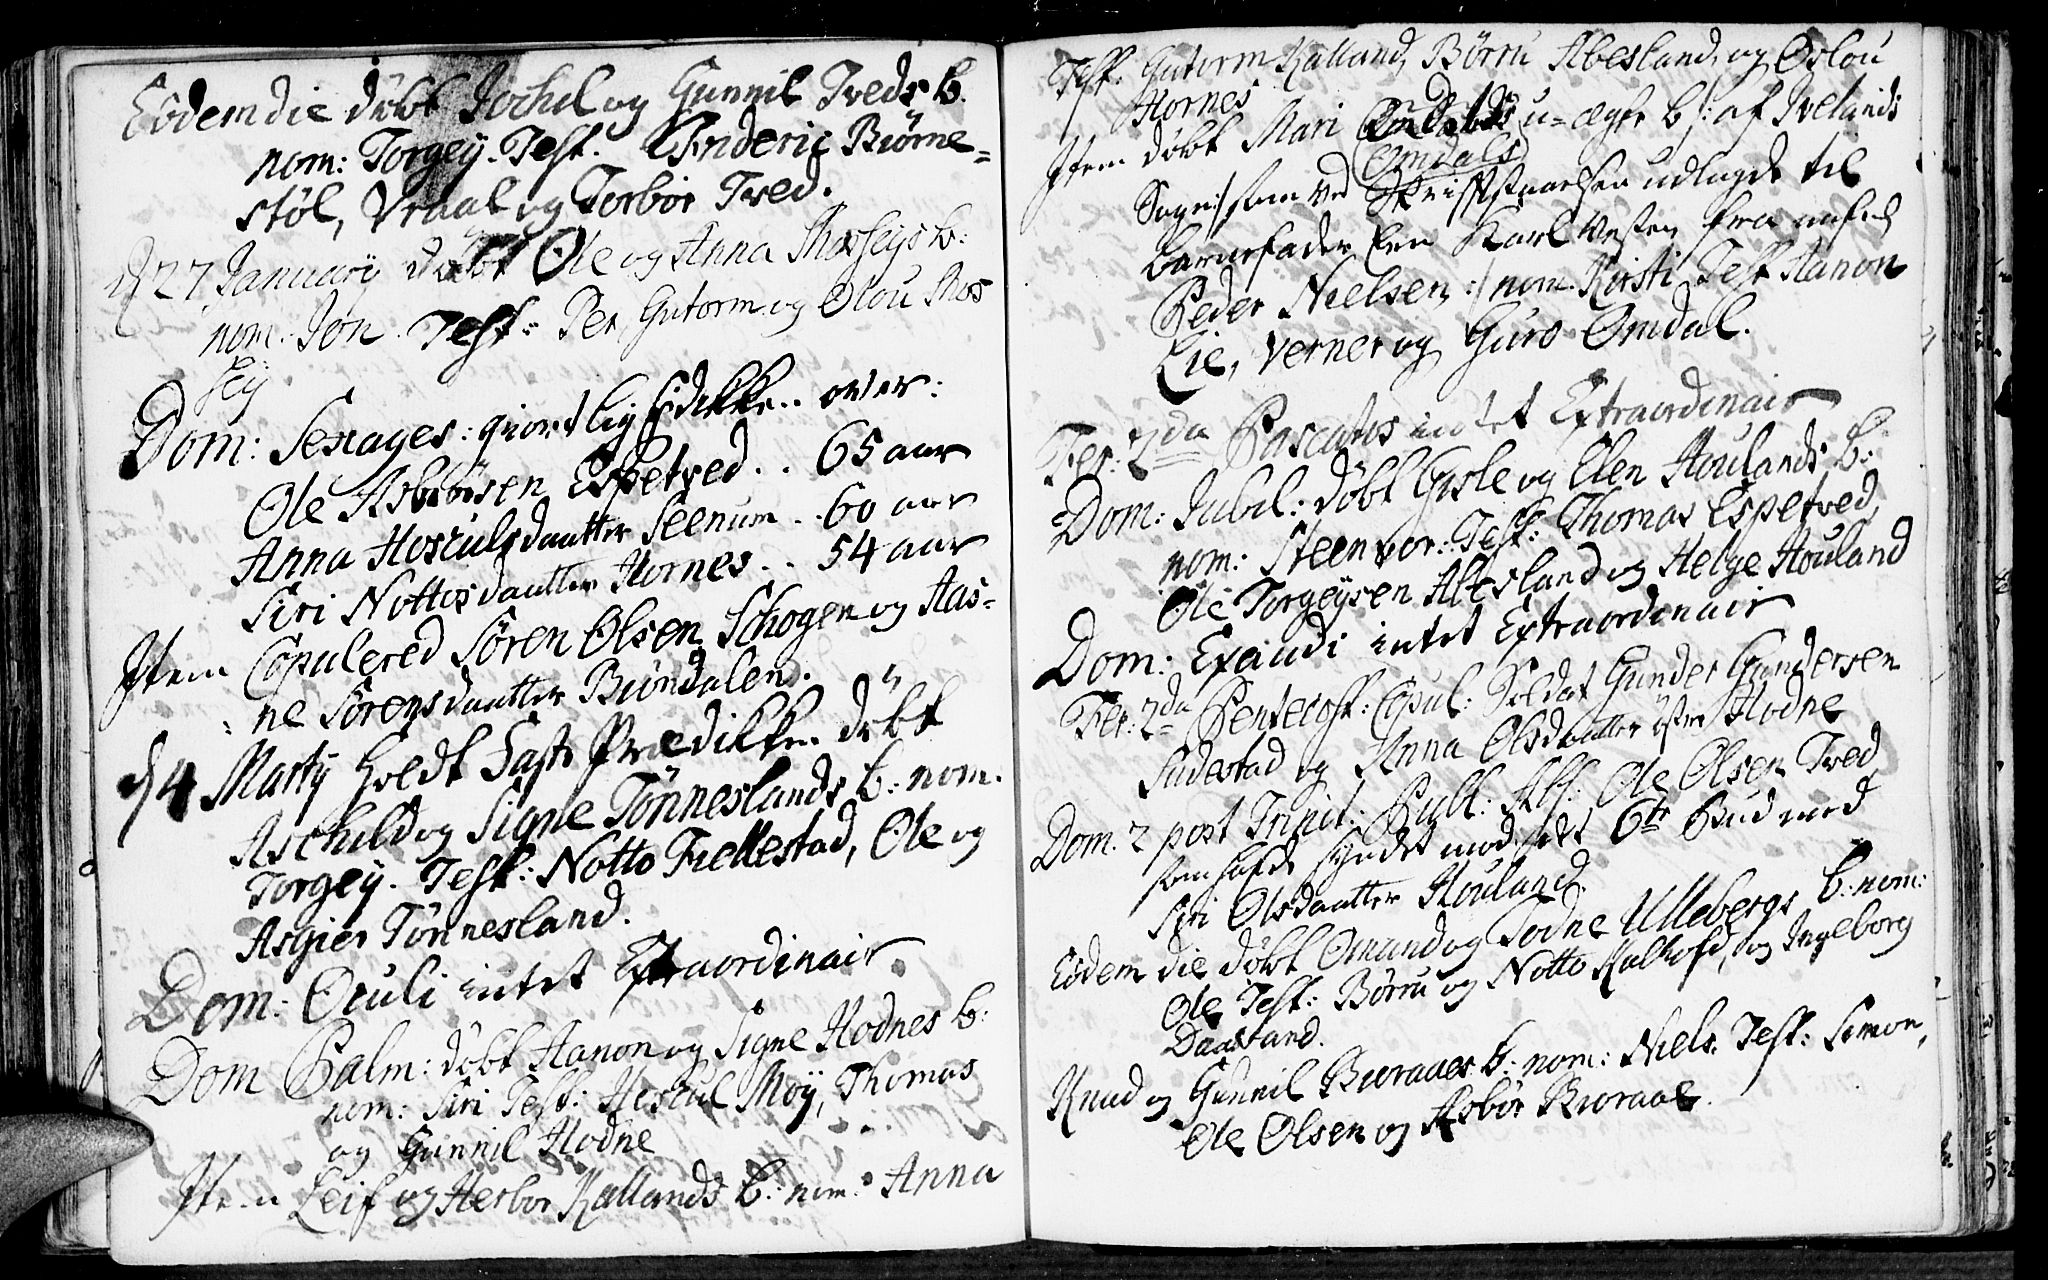 Eodem die døbt Jochel og Gunnil Tveds b.
nom: Torgeÿ. Test. Frideric Biørne=
støl, Vraal og Torbiør Tved.
d 27 Januarÿ døbt Ole og Anna Moseÿs b:
nom: Jon. Test: Per, Gutorm og Olou Mos
seÿ
Dom: Sexages: giort ligprædikken over:
Ole Asbiörsen Espetved .. 65 aar
Anna Hoskulsdaatter Steenum .. 60 aar
Siri Nottosdaatter Hornes .. 54 aar
Item Copulered Sören Olsen Schogen og Aas=
=ne Sörensdaatter Biöndalen.
d 4 Martÿ holdt Faste Prædikken döbt
Aschild og Signe Tönneslands b: nom.
Torgeÿ. Test: Notto Fiellestad, Ole og
Asgier Tönnesland.
Dom: Oculi intet Extraordinair
Dom Palm: döbt Hanon og Signe Hodnes b:
nom: Siri Test: Hoskul Moÿ, Thomas
og Gunnil Hodne
Item Leif og Herbor Kallands b: nom: Anna
Test: Gutorm Kalland, Börru Abesland, og Oslou
Hornes
Item döbt Mari Omdals u-ægte b /: af Ivelands
Omdals
Sogn :/ som ved Skrifftstaaelsen udlagde til
barnefader een Karl Vesten fra nafnl
Peder Nielsen, :/ nom. Kirsti Test Hanon
Lie, Verner og Guro Omdal.
Fer: 2da Pascatos intet Extraordinair
Dom: Jubil: döbt Gisle og Elen Houlands b:
nom: Steenvor: Test: Thomas Espetved,
Ole Torgeÿsen Abesland og Helge Houland
Dom: Exaudi intet Extraordinair
Fer: 2da Pentecost: Copul: Soldat Gunder Gundersen
Sudestad og Anna Olsdaatter östre Hodne
Dom. 2 post Trinit: Publ: Abs: Ole Olsen Tved
som hafde syndet mod det 6te Bud med
Siri Olsdaatter Houland.
Eodem die döbt Omund og Todne Ullebergs b: nom:
Ole Test: Börru og Notto Kalhofd, og Ingeborg
Daastand.
Knud og Gunnil Bioraaes b: nom: Niels. Test: Simon,
Ole Olsen og Asbiör Bioraae.